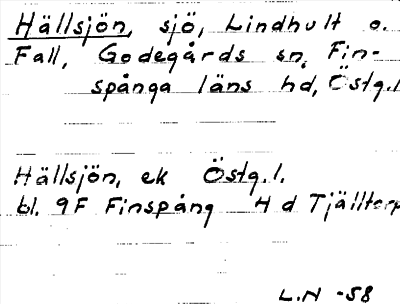 Hällsjön, sjö, Lindhult o.
Fall, Godegårds sn, Fin-
spånga läns hd, Östg.l.
Hällsjön, ek Östg.l.
bl. 9F Finspång 4 d Tjälltorp
L.N -58